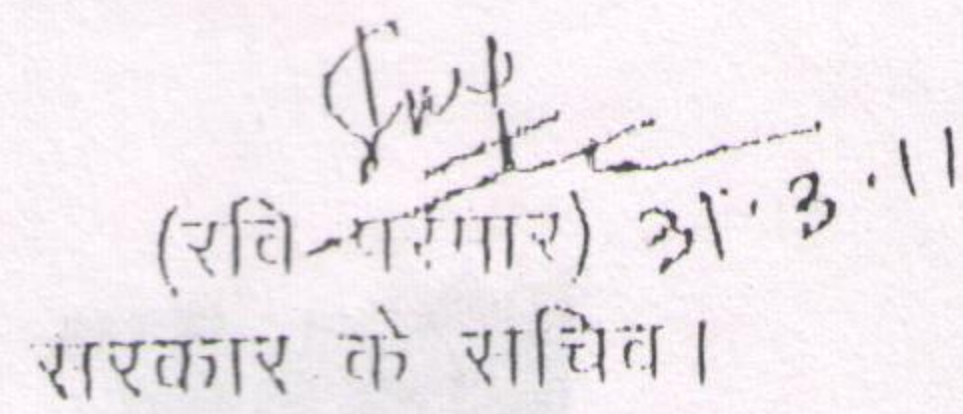 (रवि परमार) 31.3.11
सरकार के सचिव।